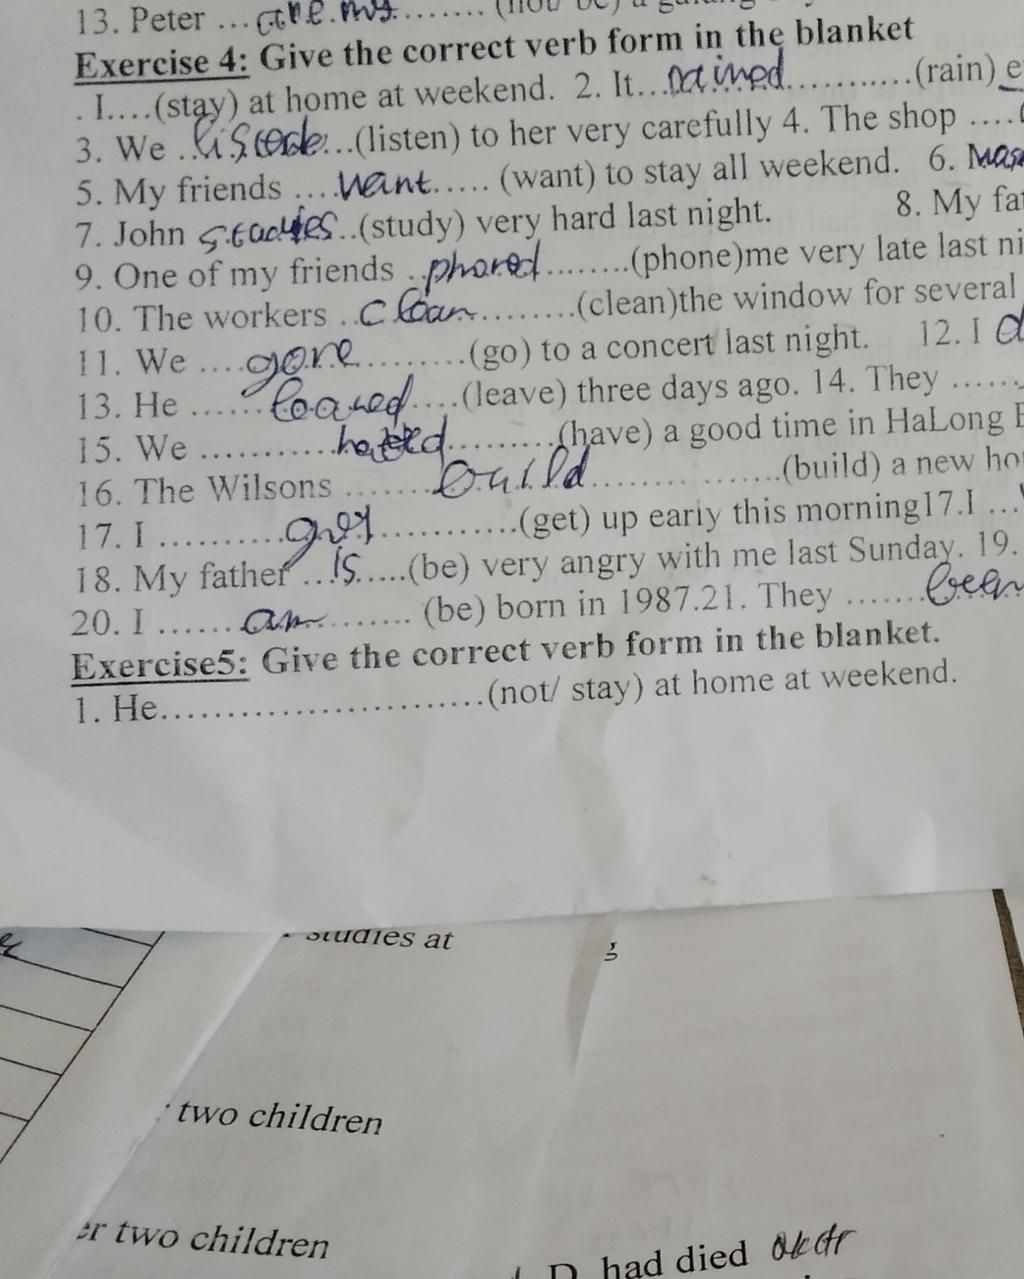 13. Peter ... are.
Exercise 4: Give the correct verb form in the blanket
. I....(stay) at home at weekend. 2. It...rained...........(rain)
3. We .. ...(listen) to her very carefully 4. The shop ....
5. My friends ....want..... (want) to stay all weekend. 6.
7. John studies..(study) very hard last night. 8. My
9. One of my friends ..phoned........(phone)me very late last
10. The workers ..clean.........(clean)the window for several
11. We ....gone.........(go) to a concert last night. 12. I
13. He ......leaved....(leave) three days ago. 14. They ......
15. We ........... .........(have) a good time in HaLong
16. The Wilsons .......build.................(build) a new
17. I ..........get............(get) up early this morning17.I ...
18. My father ..is.....(be) very angry with me last Sunday. 19.
20. I ......am........ (be) born in 1987.21. They .......been
Exercise5: Give the correct verb form in the blanket.
1. He.........................(not/ stay) at home at weekend.
studies at
two children
two children
D had died